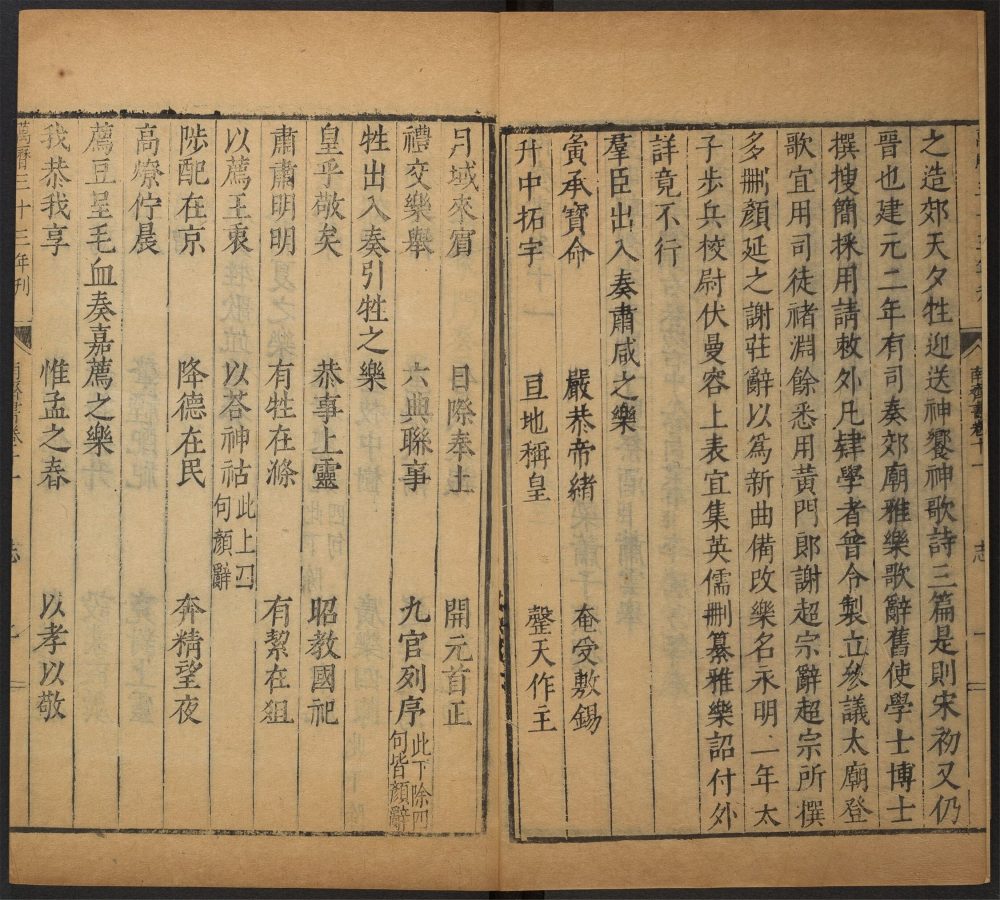 之造郊天夕牲迎送神饗神歌詩三篇是則宋初又仍
晉也建元二年有司奏郊廟雅樂歌辭舊使學士博士
撰搜簡採用請敕外凡肄學者普令製立參議太廟登
歌宜用司徒褚淵餘悉用黃門郎謝超宗辭超宗所撰
多刪顏延之謝莊辭以爲新曲備改樂名永明二年太
子步兵校尉伏曼容上表宜集英儒刪纂雅樂詔付外
詳竟不行
羣臣出入奏肅咸之樂
夤承寶命　嚴恭帝緒　奄受敷錫
升中拓宇　亘地稱皇　罄天作主
月域來賓　日際奉土　開元首正
禮交樂舉　六典聯事　九官列序此下除四句皆顏辭
牲出入奏引牲之樂
皇乎敬矣　恭事上靈　昭教國祀
肅肅明明　有牲在滌　有絜在俎
以薦王衷　以荅神祜此上四句顏辭
陟配在京　降德在民　奔精望夜
高燎佇晨
薦豆呈毛血奏嘉薦之樂
我恭我享　惟孟之春　以孝以敬
萬曆三十三年刊
南齊書卷十一　志　二